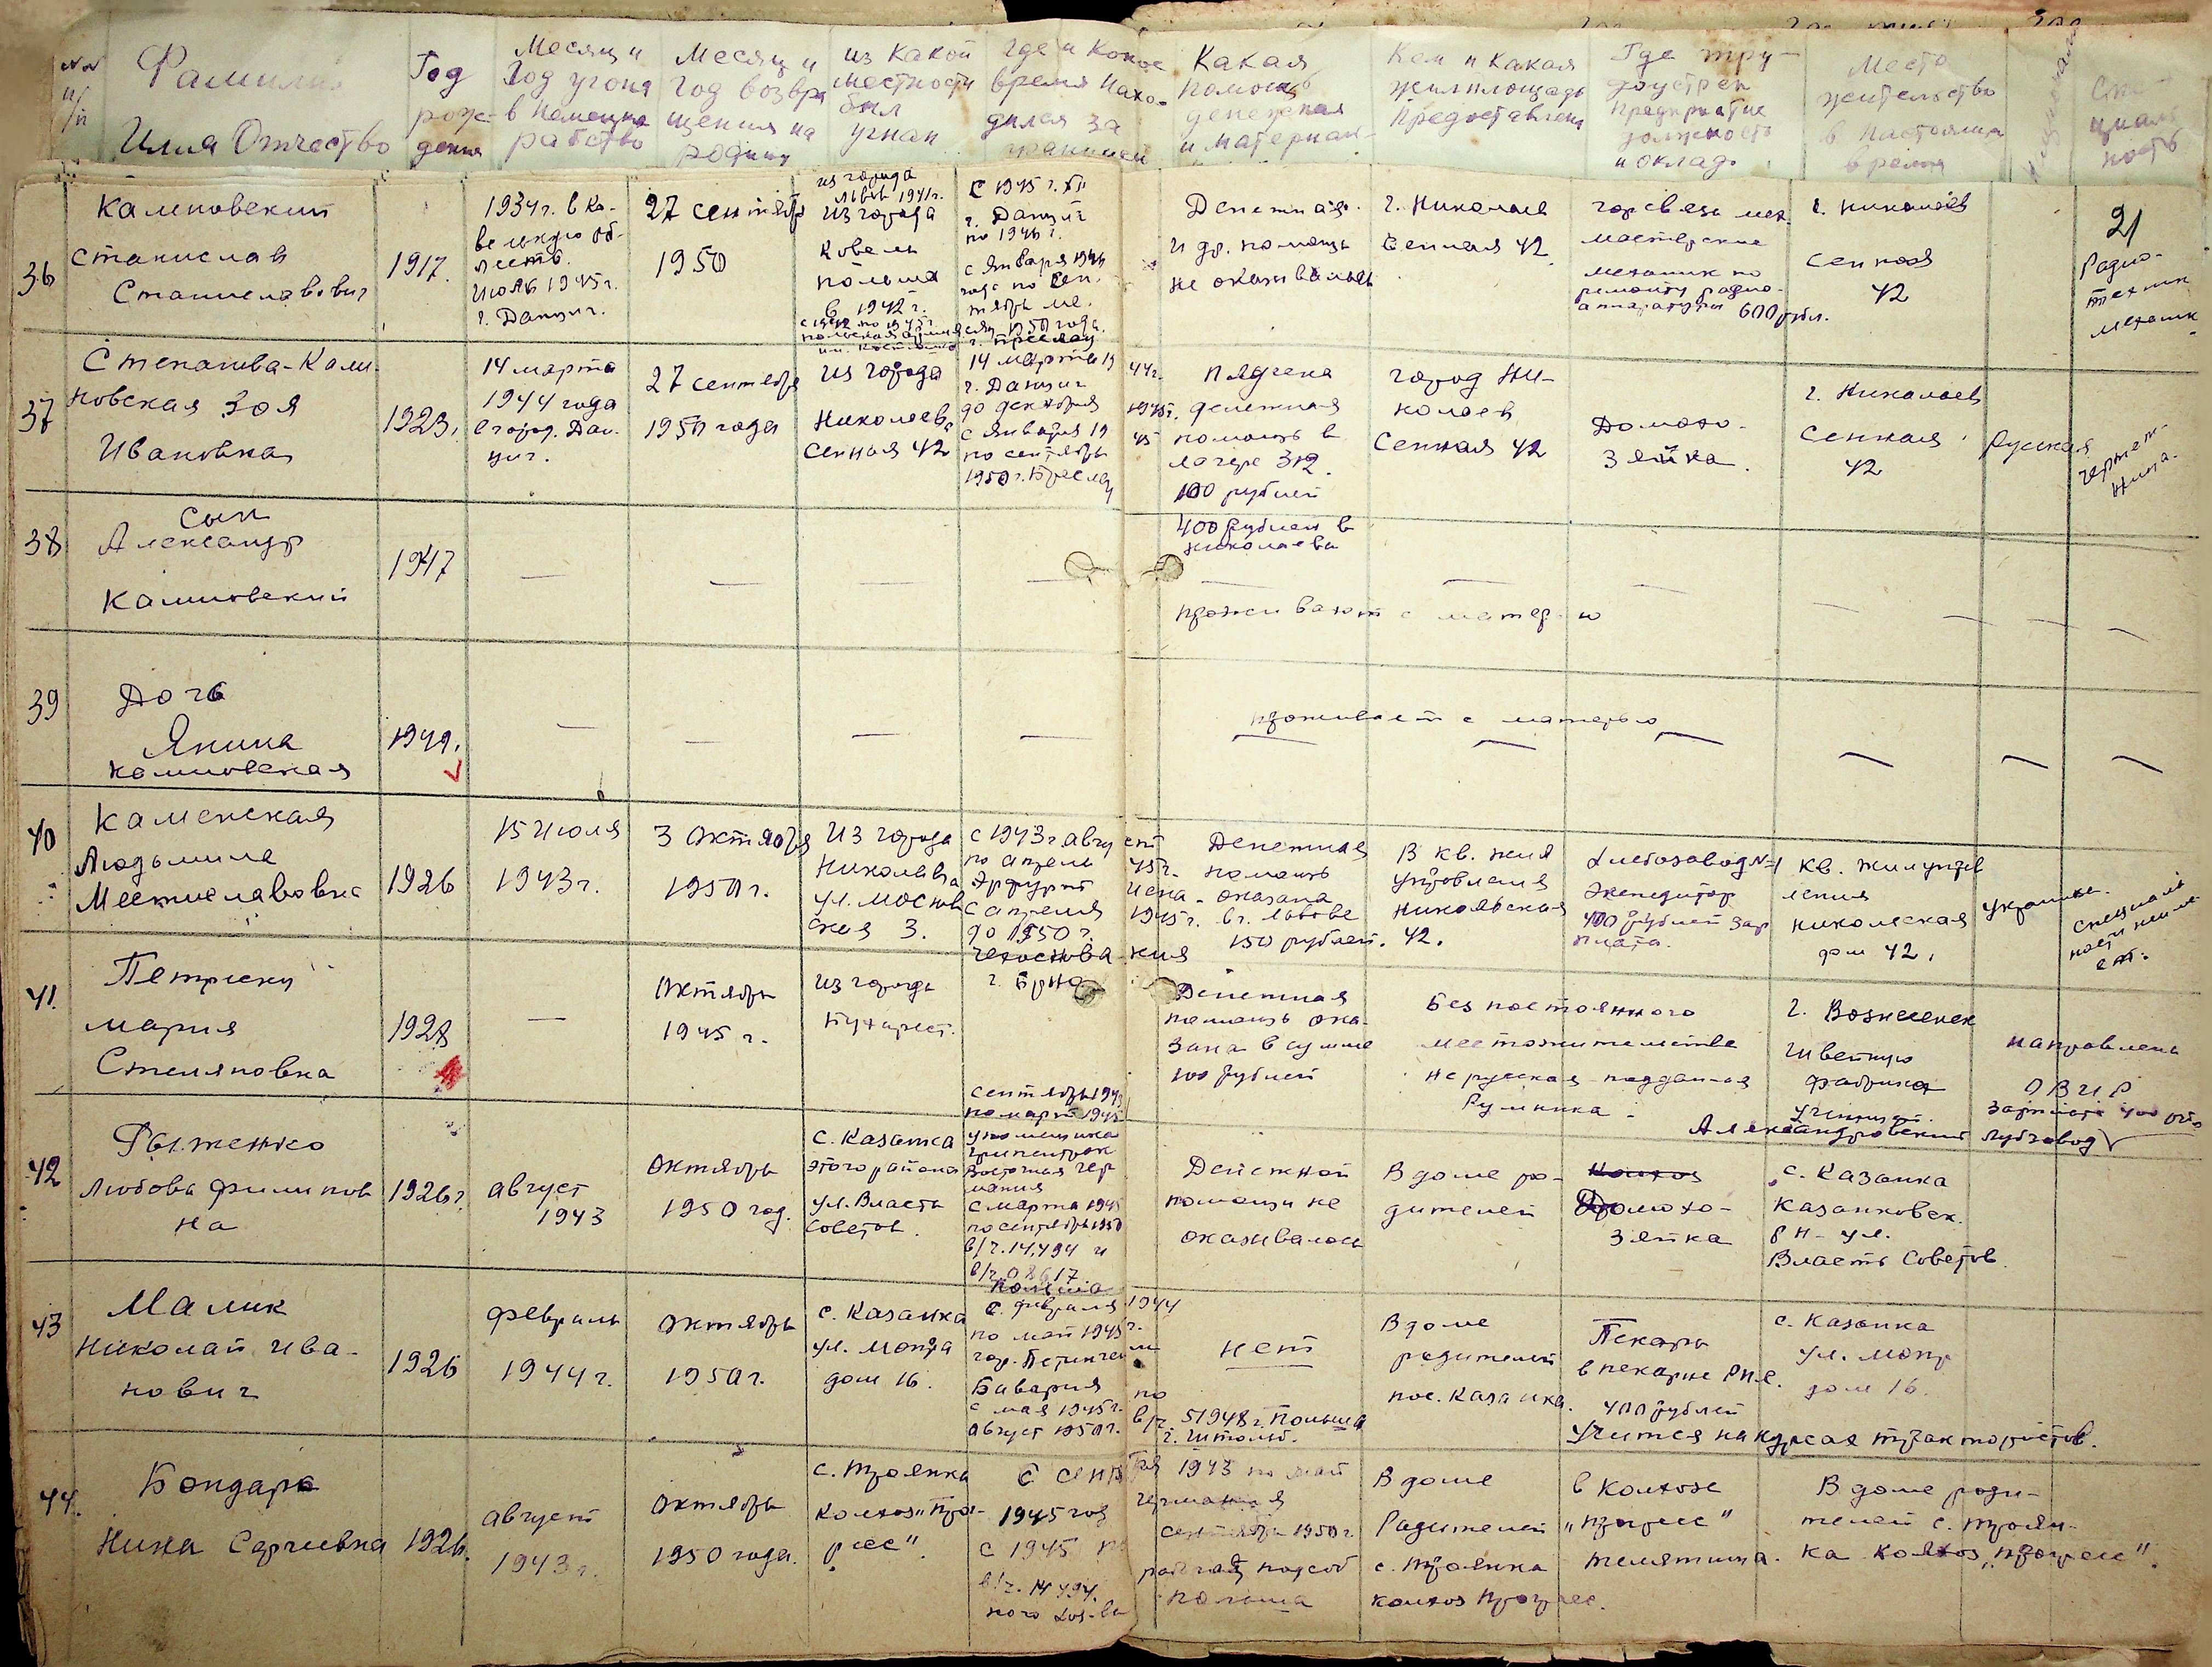 №№ п/п
Фамилия
Имя Отчество
Год
рож-
дения
Месяц и
Год угона
в Немецко
рабство
Месяц и
год возвра
щения на
родину
из какой
местности
был
угнан
где и какое
время нахо-
дился за
границей
Какая
помощь
денежная
и материал-
Кем и какая
жилплощадь
предоставлена
Где тру-
доустроен
предприятие
должность
и оклад.
Место
жительства
в настоящее
время
Спе
циаль
ность
21
36
Калиновский
Станислав
Станиславович
1917.
1934 г. в Ко-
вельскую об-
ласть.
Июль 1945 г.
г. Данциг.
27 сентября
1950
из города
Львов 1941 г.
из города
Ковель
польша
в 1942 г.
с 1942 по 1945 г.
польская армия
им. костюшко
С 1945 г.
г. Данциг
по 1946 г.
с Января 1946
года по сен.
тябрь ме.
сяц 1950 года.
г. Бреслау
Денежная
и др. помощь
не оказывалась
г. Николаев
Сенная 42
горсвязь мех.
мастерские
механик по
ремонту радио-
аппаратуры 600 рубл.
г. Николаев
Сенная
42
Радио-
техник
механик
37
Степанова-Кали-
новская Зоя
Ивановна
1923.
14 марта
1944 года
в город. Дан-
циг.
27 сентября
1950 года
из города
Николаева
Сенная 42
14 марта 1944 г.
г. Данциг
до декабря 1945 г.
с Января 1945
по сентябрь
1950 г. Бреслау
получена
денежная
помощь в
лагере 312.
100 рублей
400 рублей в
николаеве
город Ни-
колаев
Сенная 42
Домохо-
зяйка.
г. Николаев
Сенная
42
Русская
чертеж-
ница.
38
Сын
Александр
Калиновский
1947
— — — — — — — — — —
проживают с матерью
39
Дочь
Янина
Калиновская
1949.
— — — — — — — — — —
проживает с матерью
40
Каменская
Людьмила
Мстиславовна
1926
15 Июля
1943 г.
3 Октября
1950 г.
Из города
Николаева
ул. Москов
ская 3.
с 1943 г. август
по апрель 45 г.
Эрфурт
с апреля 1945 г.
до 1950 г.
Чехословакия
г. Брно
Денежная
помощь
оказана
в г. Львове
150 рублей.
В кв. жил
управления
Никольская
42.
Хлебозавод №1
Экспедитор
400 рублей зар
плата.
кв. жилуправ
ления
никольская
дом 42.
Украинка.
специаль
ности не име
ет.
41.
Петреску
мария
Стеляновна
1928
—
Октябрь
1945 г.
из города
Бухарест.
Денежная
помощь ока-
зана в сумме
100 рублей
Без постоянного
местожительства
не русская подданная
Румынка.
г. Вознесенск
Швейную
фабрика
Ученицей.
направлена
ОВИР
зарплата 400 руб
42
Рыженко
Любовь Филипов
на
1926 г.
август
1943
Октябрь
1950 год.
с. Казанка
этого района
ул. Власть
Советов.
Сентябрь 1943
по март 1945
у помещика
Восточная Гер
мания
с марта 1945
по сентябрь 1950
в/ч. 14.494 и
в/ч. 08617
Польша
Денежной
помощи не
оказывалось
В доме ро-
дителей
Александровский Лубзавод
колхоз
Домохо-
зяйка
с. Казанка
Казанковск.
р-н - ул.
Власть Советов.
43
Малик
Николай Ива-
нович
1926
Февраль
1944 г.
Октябрь
1950 г.
с. Казанка
ул. Мопра
дом 16.
с. февраля 1944
по май 1945 г.
Бавария
с мая 1945 г. по
август 1950 г.
в/ч. 51948 г. Польша
нет
В доме
родителей
пос. Казанка.
Пекарь
в пекарне
400 рублей
Учится на курсах трактористов.
с. Казанка
ул. мопр
дом 16.
44.
Бондарь
Нина Сергеевна
1926.
август
1943 г.
Октябрь
1950 года.
с. Троянка
колхоз „прог-
ресс".
С сентября 1943 по май
1945 год германия
с 1945 по сентябрь 1950 г.
в/ч. 14494. рабочая подсоб
ного хоз-ва польша
В доме
Родителей
с. Троянка
колхоз прогресс.
в колхозе
„прогресс"
телятница.
В доме роди-
телей с. Троян-
ка колхоз „прогресс".